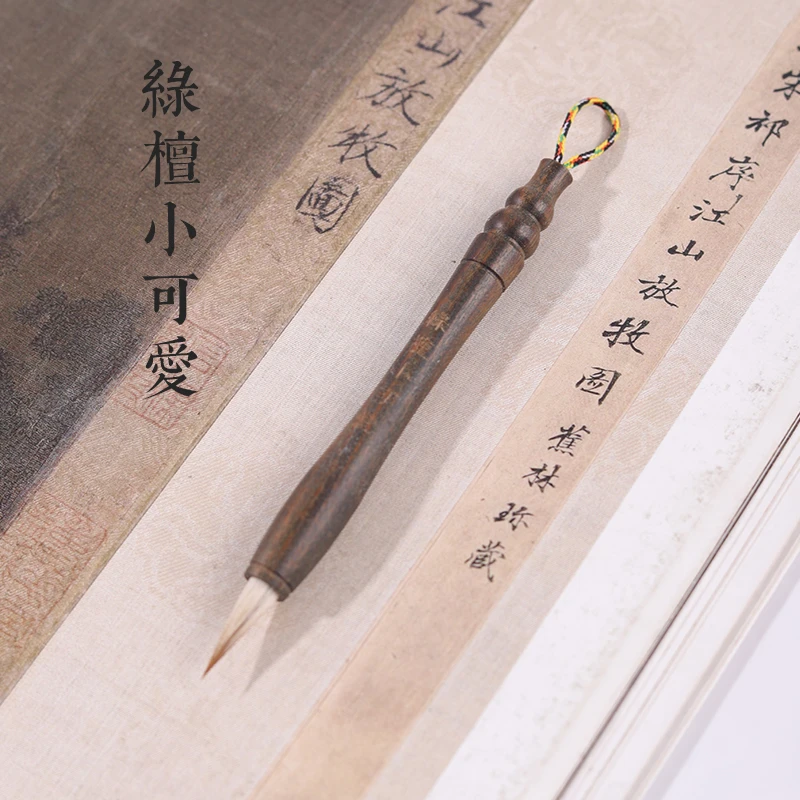 綠檀小可愛
江山放牧圖
宋祁序江山放牧图
蕉林珍藏